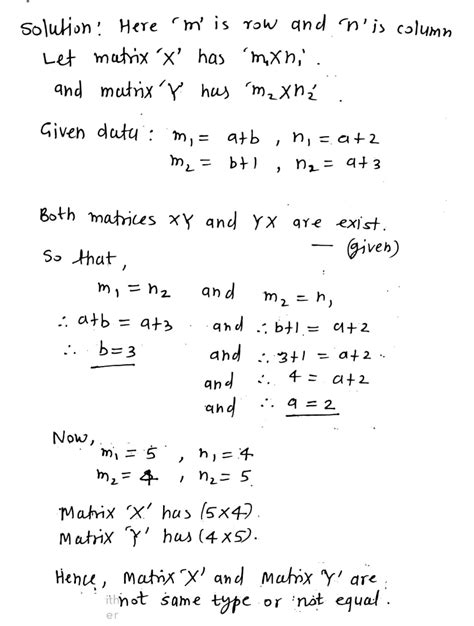 Solution: Here 'm' is row and 'n' is column
Let matrix 'X' has 'm₁xn₁'.
and matrix 'Y' has 'm₂xn₂'.
Given data: m₁ = a+b , n₁ = a+2
m₂ = b+1 , n₂ = a+3
Both matrices XY and YX are exist.
— (given)
So that,
m₁ = n₂ and m₂ = n₁
∴ a+b = a+3 and ∴ b+1 = a+2
∴ b=3 and ∴ 3+1 = a+2
and ∴ 4 = a+2
and ∴ a = 2
Now,
m₁ = 5 , n₁ = 4
m₂ = 4 , n₂ = 5
Matrix 'X' has (5x4).
Matrix 'Y' has (4x5).
Hence, Matrix 'X' and Matrix 'Y' are
not same type or not equal.
er